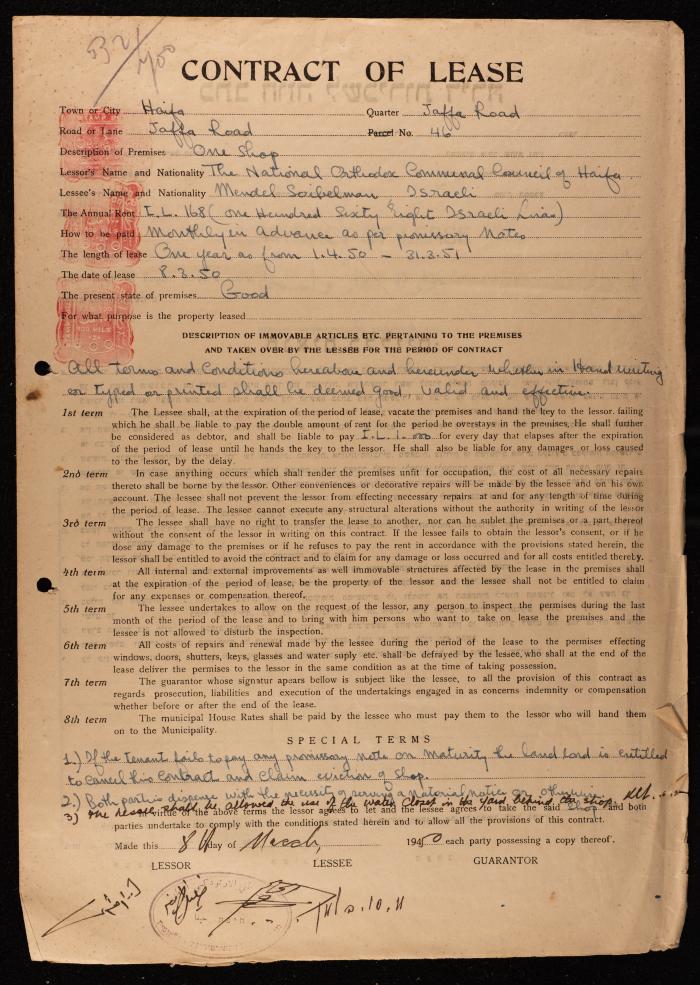 532/700
CONTRACT OF LEASE
Town or City Haifa Quarter Jaffa Road
Road or Lane Jaffa Road Parcel No. 46
Description of Premises One Shop
Lessor's Name and Nationality The National Orthodox Communal Council of Haifa
Lessee's Name and Nationality Mendel Israeli
The Annual Rent I.L. 168 (one Hundred Sixty Eight Israeli Liras)
How to be paid Monthly in advance as per promissory Notes
The length of lease One year as from 1.4.50 – 31.3.51
The date of lease 8.3.50
The present state of premises Good
For what purpose is the property leased
DESCRIPTION OF IMMOVABLE ARTICLES ETC. PERTAINING TO THE PREMISES
AND TAKEN OVER BY THE LESSEE FOR THE PERIOD OF CONTRACT
All terms and Conditions hereabove and hereunder whether in Hand writing
or typed or printed shall be deemed good, valid and effective.
1st term The Lessee shall, at the expiration of the period of lease, vacate the premises and hand the key to the lessor. failing
which he shall be liable to pay the double amount of rent for the period he overstays in the premises. He shall further
be considered as debtor, and shall be liable to pay I.L. 1.000 for every day that elapses after the expiration
of the period of lease until he hands the key to the lessor. He shall also be liable for any damages or loss caused
to the lessor, by the delay.
2nd term In case anything occurs which shall render the premises unfit for occupation, the cost of all necessary repairs
thereto shall be borne by the lessor. Other conveniences or decorative repairs will be made by the lessee and on his own
account. The lessee shall not prevent the lessor from effecting necessary repairs at and for any length of time during
the period of lease. The lessee cannot execute any structural alterations without the authority in writing of the lessor
3rd term The lessee shall have no right to transfer the lease to another, nor can he sublet the premises or a part thereof
without the consent of the lessor in writing on this contract. If the lessee fails to obtain the lessor's consent, or if he
dose any damage to the premises or if he refuses to pay the rent in accordance with the provisions stated herein, the
lessor shall be entitled to avoid the contract and to claim for any damage or loss occurred and for all costs entitled thereby.
4th term All internal and external improvements as well immovable structures affected by the lease in the premises shall
at the expiration of the period of lease, be the property of the lessor and the lessee shall not be entitled to claim
for any expenses or compensation thereof.
5th term The lessee undertakes to allow on the request of the lessor, any person to inspect the permises during the last
month of the period of the lease and to bring with him persons who want to take on lease the premises and the
lessee is not allowed to disturb the inspection.
6th term All costs of repairs and renewal made by the lessee during the period of the lease to the permises effecting
windows, doors, shutters, keys, glasses and water suply etc. shall be defrayed by the lessee, who shall at the end of the
lease deliver the permises to the lessor in the same condition as at the time of taking possession.
7th term The guarantor whose signatur apears bellow is subject like the lessee, to all the provision of this contract as
regards prosecution, liabilities and execution of the undertakings engaged in as concerns indemnity or compensation
whether before or after the end of the lease.
8th term The municipal House Rates shall be paid by the lessee who must pay them to the lessor who will hand them
on to the Municipality.
SPECIAL TERMS
1.) If the tenant fails to pay any promissory note on maturity the land lord is entitled
to cancel his contract and claim eviction of shop.
2.) Both parties dispense with the necessity of serving a Notarial notice or otherwise.
3) The lessee shall be allowed the use of the water closet in the yard behind the shop.
In virtue of the above terms the lessor agrees to let and the lessee agrees to take the said shop and both
parties undertake to comply with the conditions stated herein and to allow all the provisions of this contract.
Made this 8th day of March, 1950 each party possessing a copy thereof.
LESSOR LESSEE GUARANTOR